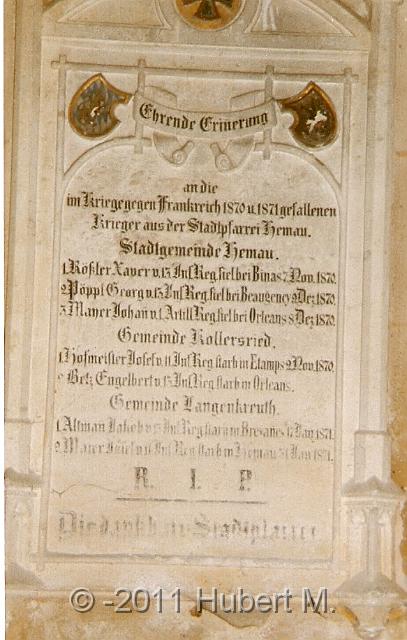 Ehrende Erinerung
an die
im Kriege gegen Frankreich 1870 u. 1871 gefallenen
Krieger aus der Stadtpfarrei Hemau.
Stadtgemeinde Hemau.
1. Rößler Xaver v. 13. Inf. Reg. fiel bei Binas 7. Nov. 1870.
2. Pöppl Georg v. 13. Inf. Reg. fiel bei Beaugency 9. Dez. 1870.
3. Mayer Johan v. 1. Artill. Reg. fiel bei Orleans 8. Dez. 1870.
Gemeinde Kollersried.
1. Hofmeister Josef v. 11. Inf. Reg. starb in Etamps 2. Nov. 1870.
2. Betz Engelbert v. 13. Inf. Reg. starb in Orleans.
Gemeinde Langenkreuth.
1. Altman Jakob v. Inf. Reg. starb in 17. Jan. 1871.
2. Maier v. 11. Inf. Reg. starb in Hemau 31. Jan. 1871.
R. I. P.
Die dankbare Stadtpfarrei
© -2011 Hubert M.